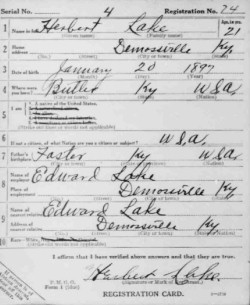 Serial No. 4 Registration No. 24
1 Name in full Herbert Lake Age, in yrs. 21
(Given name) (Family name)
2 Home address Demossville Ky
(City or town) (State)
3 Date of birth January 20 189
(Month) (Day) (Year)
4 Where were you born? Butler Ky U S A.
(City or town) (State) (Nation)
5 I am 1. A native of the United States.
(Strike out lines or words not applicable)
6 If not a citizen, of what Nation are you a citizen or subject? U S A.
7 Father's birthplace Foster Ky U S A
(City or town) (State) (Nation)
8 Name of employer Edward Lake
Place of employment Demossville Ky
(City or town) (State)
9 Name of nearest relative Edward Lake
Address of nearest relative Demossville Ky
(City or town) (State)
10 Race—White
I affirm that I have verified above answers and that they are true.
P. M. G. O.
Form 1 (blue)
Herbert Lake.
(Signature or Mark of
REGISTRATION CARD.